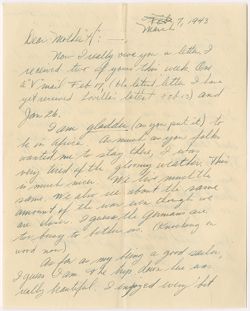 Feb. 7, 1943
March
Dear Mother & F: —
Now I really owe you a letter. I
received two of yours this week. One
a "V" mail Feb 17, (the latest letter I have
yet received Lucilles latest Feb 13) and
Jan 26.
I am gladder (as you put it) to
be in Africa. As much as you folks
wanted me to stay there, I was
very tired of the gloomy weather. This
is much nicer. We live much the
same. We also see about the same
amount of the war even though we
are closer. I guess the Germans are
too busy to bother us. (Knocking on
wood now)
As far as my being a good sailor,
I guess I am. The trip down here was
really beautiful. I enjoyed every bit